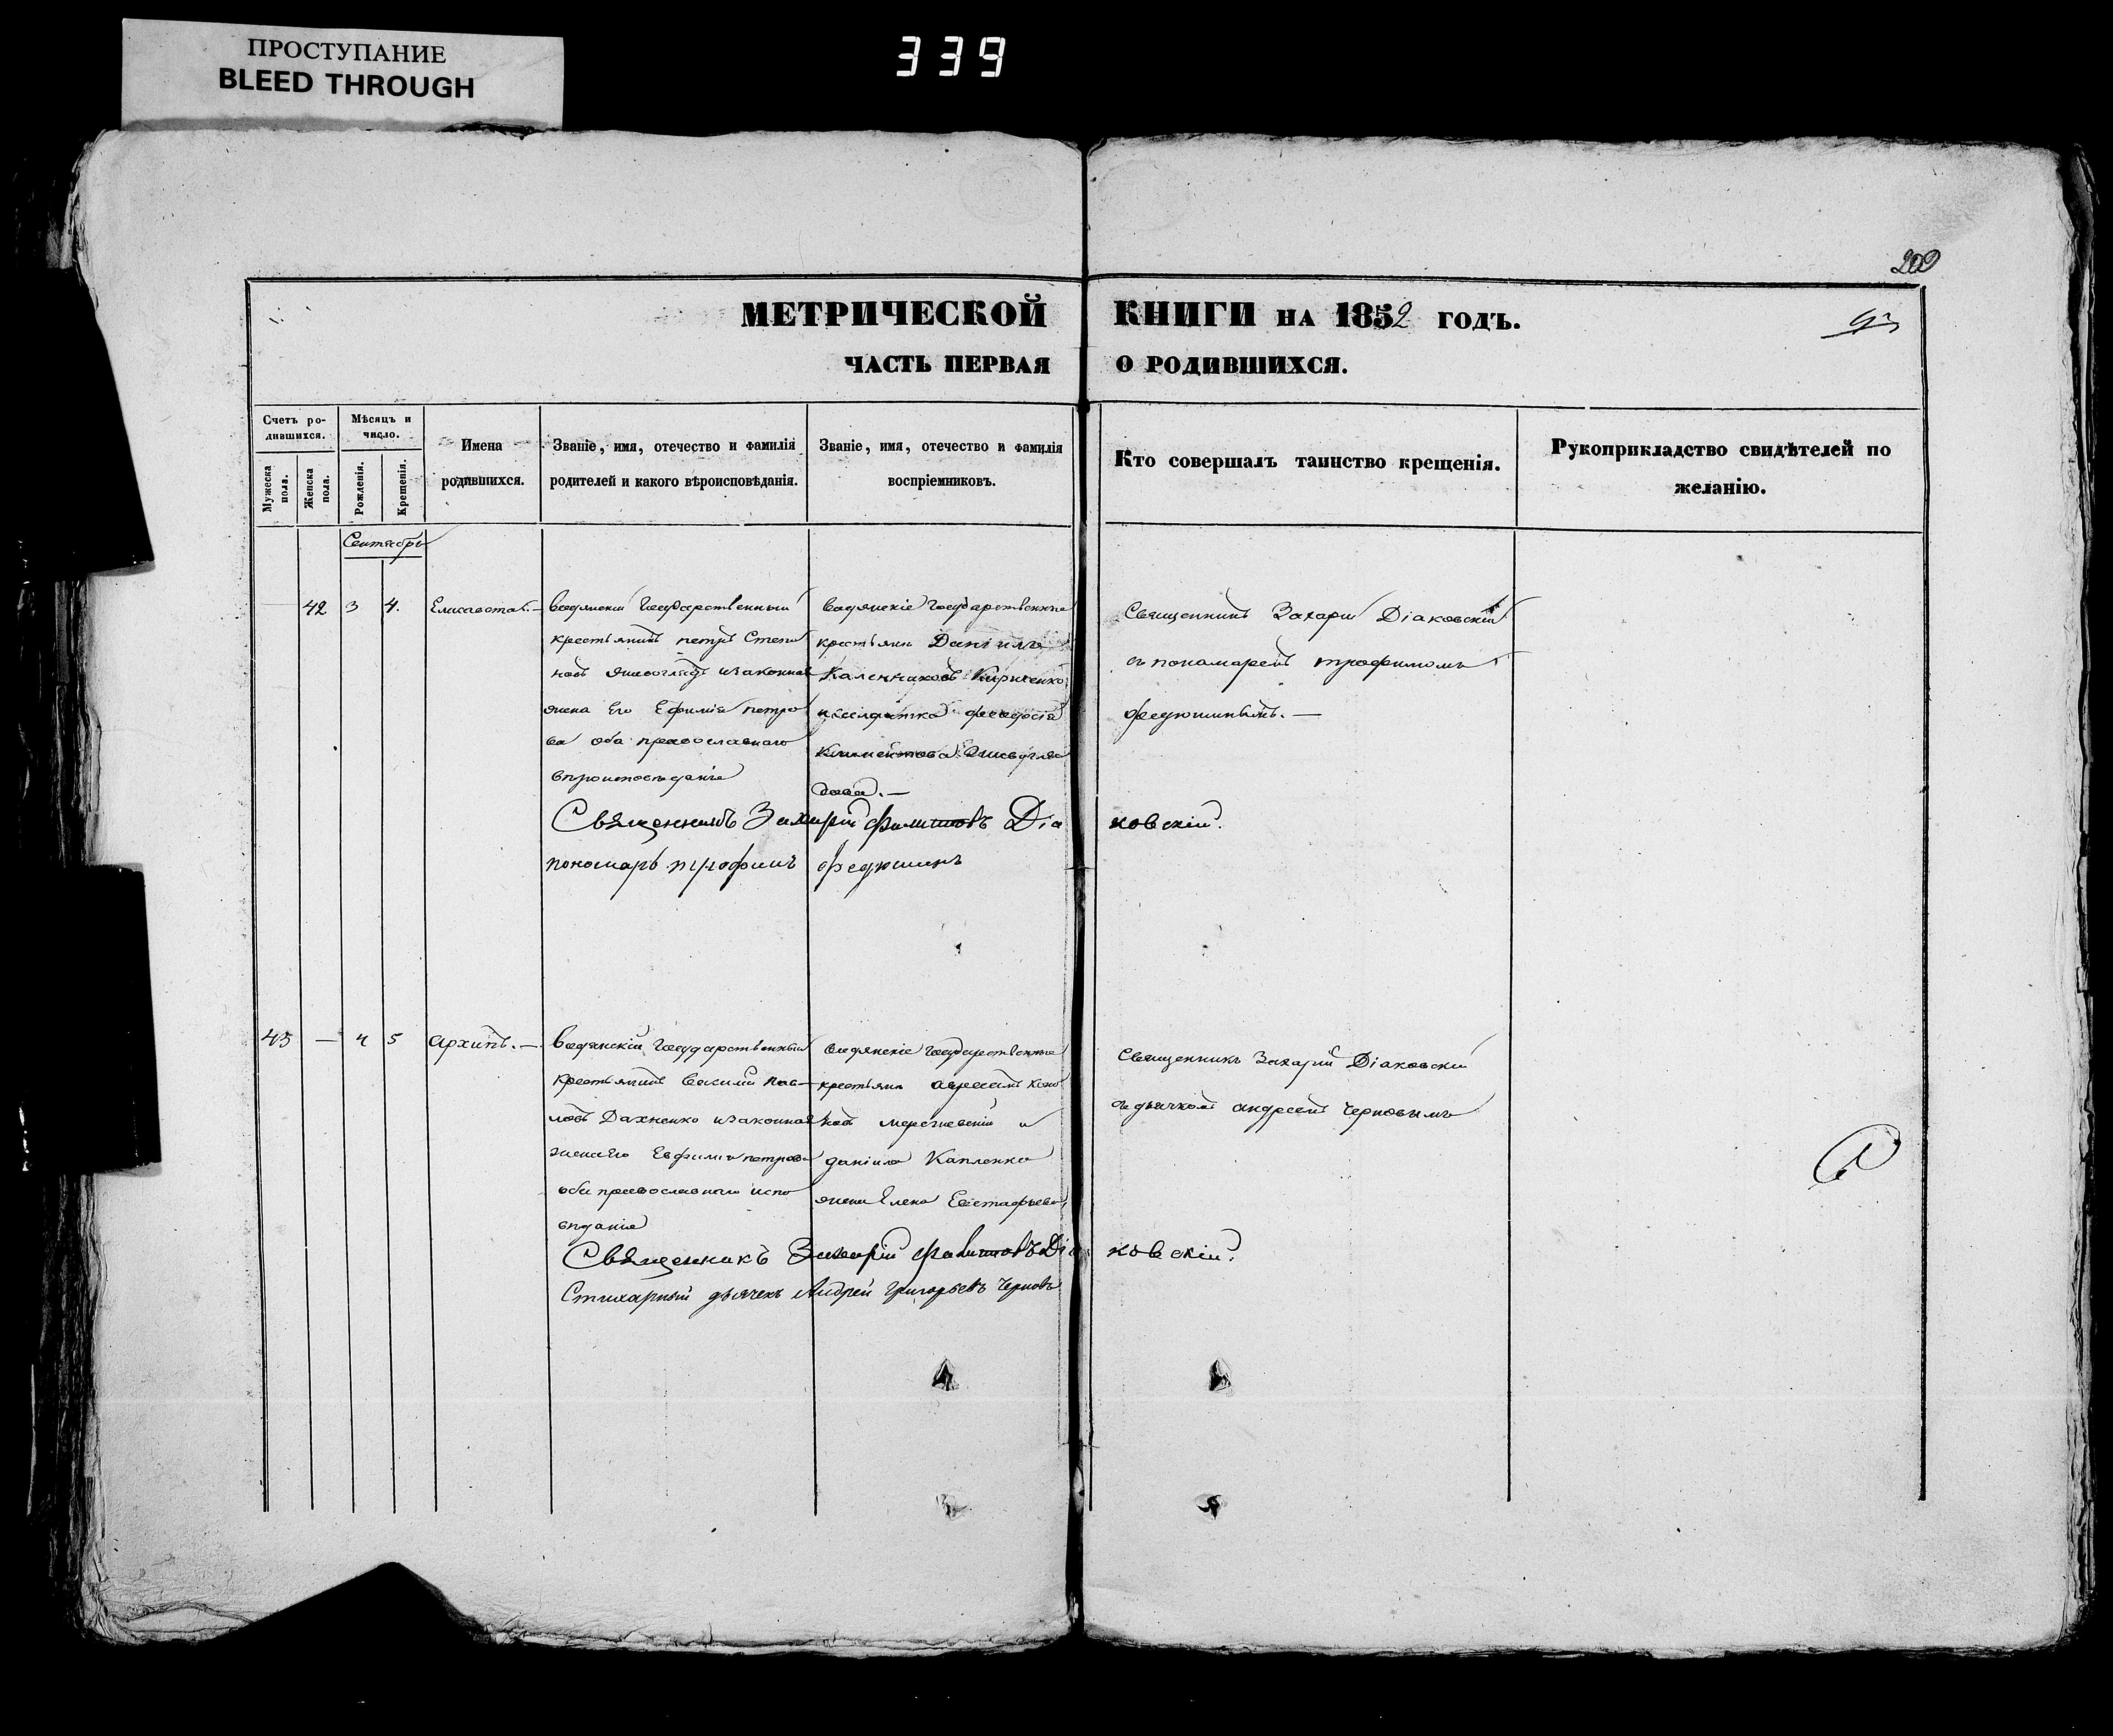 ПРОСТУПАНИЕ
BLEED THROUGH
339
202
МЕТРИЧЕСКОЙ КНИГИ НА 1852 ГОДЪ.
ЧАСТЬ ПЕРВАЯ О РОДИВШИХСЯ.
Счетъ ро-
дившихся.
Мужеска пола.
Женска пола.
Мѣсяцъ и
число.
Рожденія.
Крещенія.
Имена
родившихся.
Званіе, имя, отечество и фамилія
родителей и какого вѣроисповѣданія.
Званіе, имя, отечество и фамилія
воспріемниковъ.
Кто совершалъ таинство крещенія.
Рукоприкладство свидѣтелей по
желанію.
Сентябрь
42 3 4.
Елисавета.—
водянскій государственный
крестьянинъ петръ Степа
новъ изаконная
жена его Ефимія петро
ва оба православнаго
вѣроисповѣданія
водянскіе государственные
крестьяне Даніилъ
Каленниковъ Кириченко
и солдатка феодосія
Климентова
дова.—
Священникъ Захарій Діаковскій
съ пономаремъ трофимомъ
федюшинымъ.—
Священникъ Захарій филиповъ Діаковскій.
пономарь трофимъ федюшинъ
43 — 4 5
архипъ.—
водянскій государственный
крестьянинъ василій пав-
ловъ Дахненко изаконная
жена его Евфимія петрова
оба православнаго испо
вѣданія
водянскіе государственные
крестьяне
и
даніила Капленко
жена Елена Евстафьева
Священникъ Захарій Діаковскій
съ дьячкомъ андреемъ Черновымъ
Священникъ Захарій филиповъ Діаковскій.
Стихарный дьячекъ Андрей Григорьевъ Черновъ